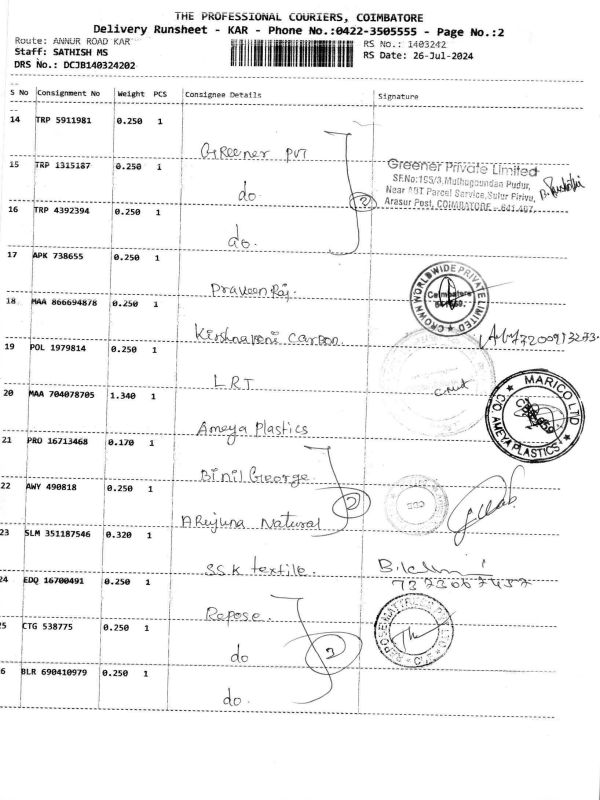 THE PROFESSIONAL COURIERS, COIMBATORE
Delivery Runsheet - KAR - Phone No.:0422-3505555 - Page No.:2
Route: ANNUR ROAD KAR
RS No.: 1403242
Staff: SATHISH MS
RS Date: 26-Jul-2024
DRS No.: DCJB140324202
S No Consignment No Weight PCS Consignee Details Signature
14 TRP 5911981 0.250 1
Greener PVT
15 TRP 1315187 0.250 1
do.
Greener Private Limited
SF.No:155/3,Muthugoundan Pudur,
Near ABT Parcel Service,Sulur Pirivu,
Arasur Post, COIMBATORE - 641 407.
16 TRP 4392394 0.250 1
do.
17 APK 738655 0.250 1
Praveen Raj.
CROWN WORLDWIDE PRIVATE LIMITED
Coimbatore
18 MAA 866694878 0.250 1
Kirshnaveni Carbon.
19 POL 1979814 0.250 1
LRT
20 MAA 704078705 1.340 1
Ameya Plastics
MARICO LTD
C/O. AMEYA PLASTICS
21 PRO 16713468 0.170 1
Binil George
22 AWY 490818 0.250 1
ARujuna Natural
23 SLM 351187546 0.320 1
SSK textile.
24 EDQ 16700491 0.250 1
Repose.
25 CTG 538775 0.250 1
do
26 BLR 690410979 0.250 1
do.